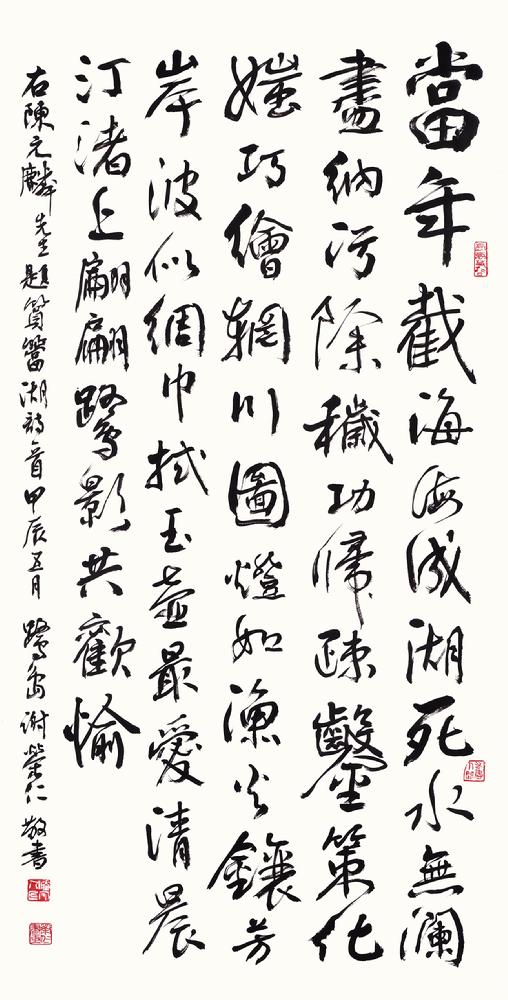 當年截海海成湖死水無瀾
盡納污除穢功歸疎鑿策化
媸巧繪輞川圖燈如漁火鑲芳
岸波似綢巾拭玉壺最愛清晨
汀渚上翩翩鷺影共歡愉
右陳元麟先生題篔簹湖詩一首甲辰五月鷺島謝榮仁敬書